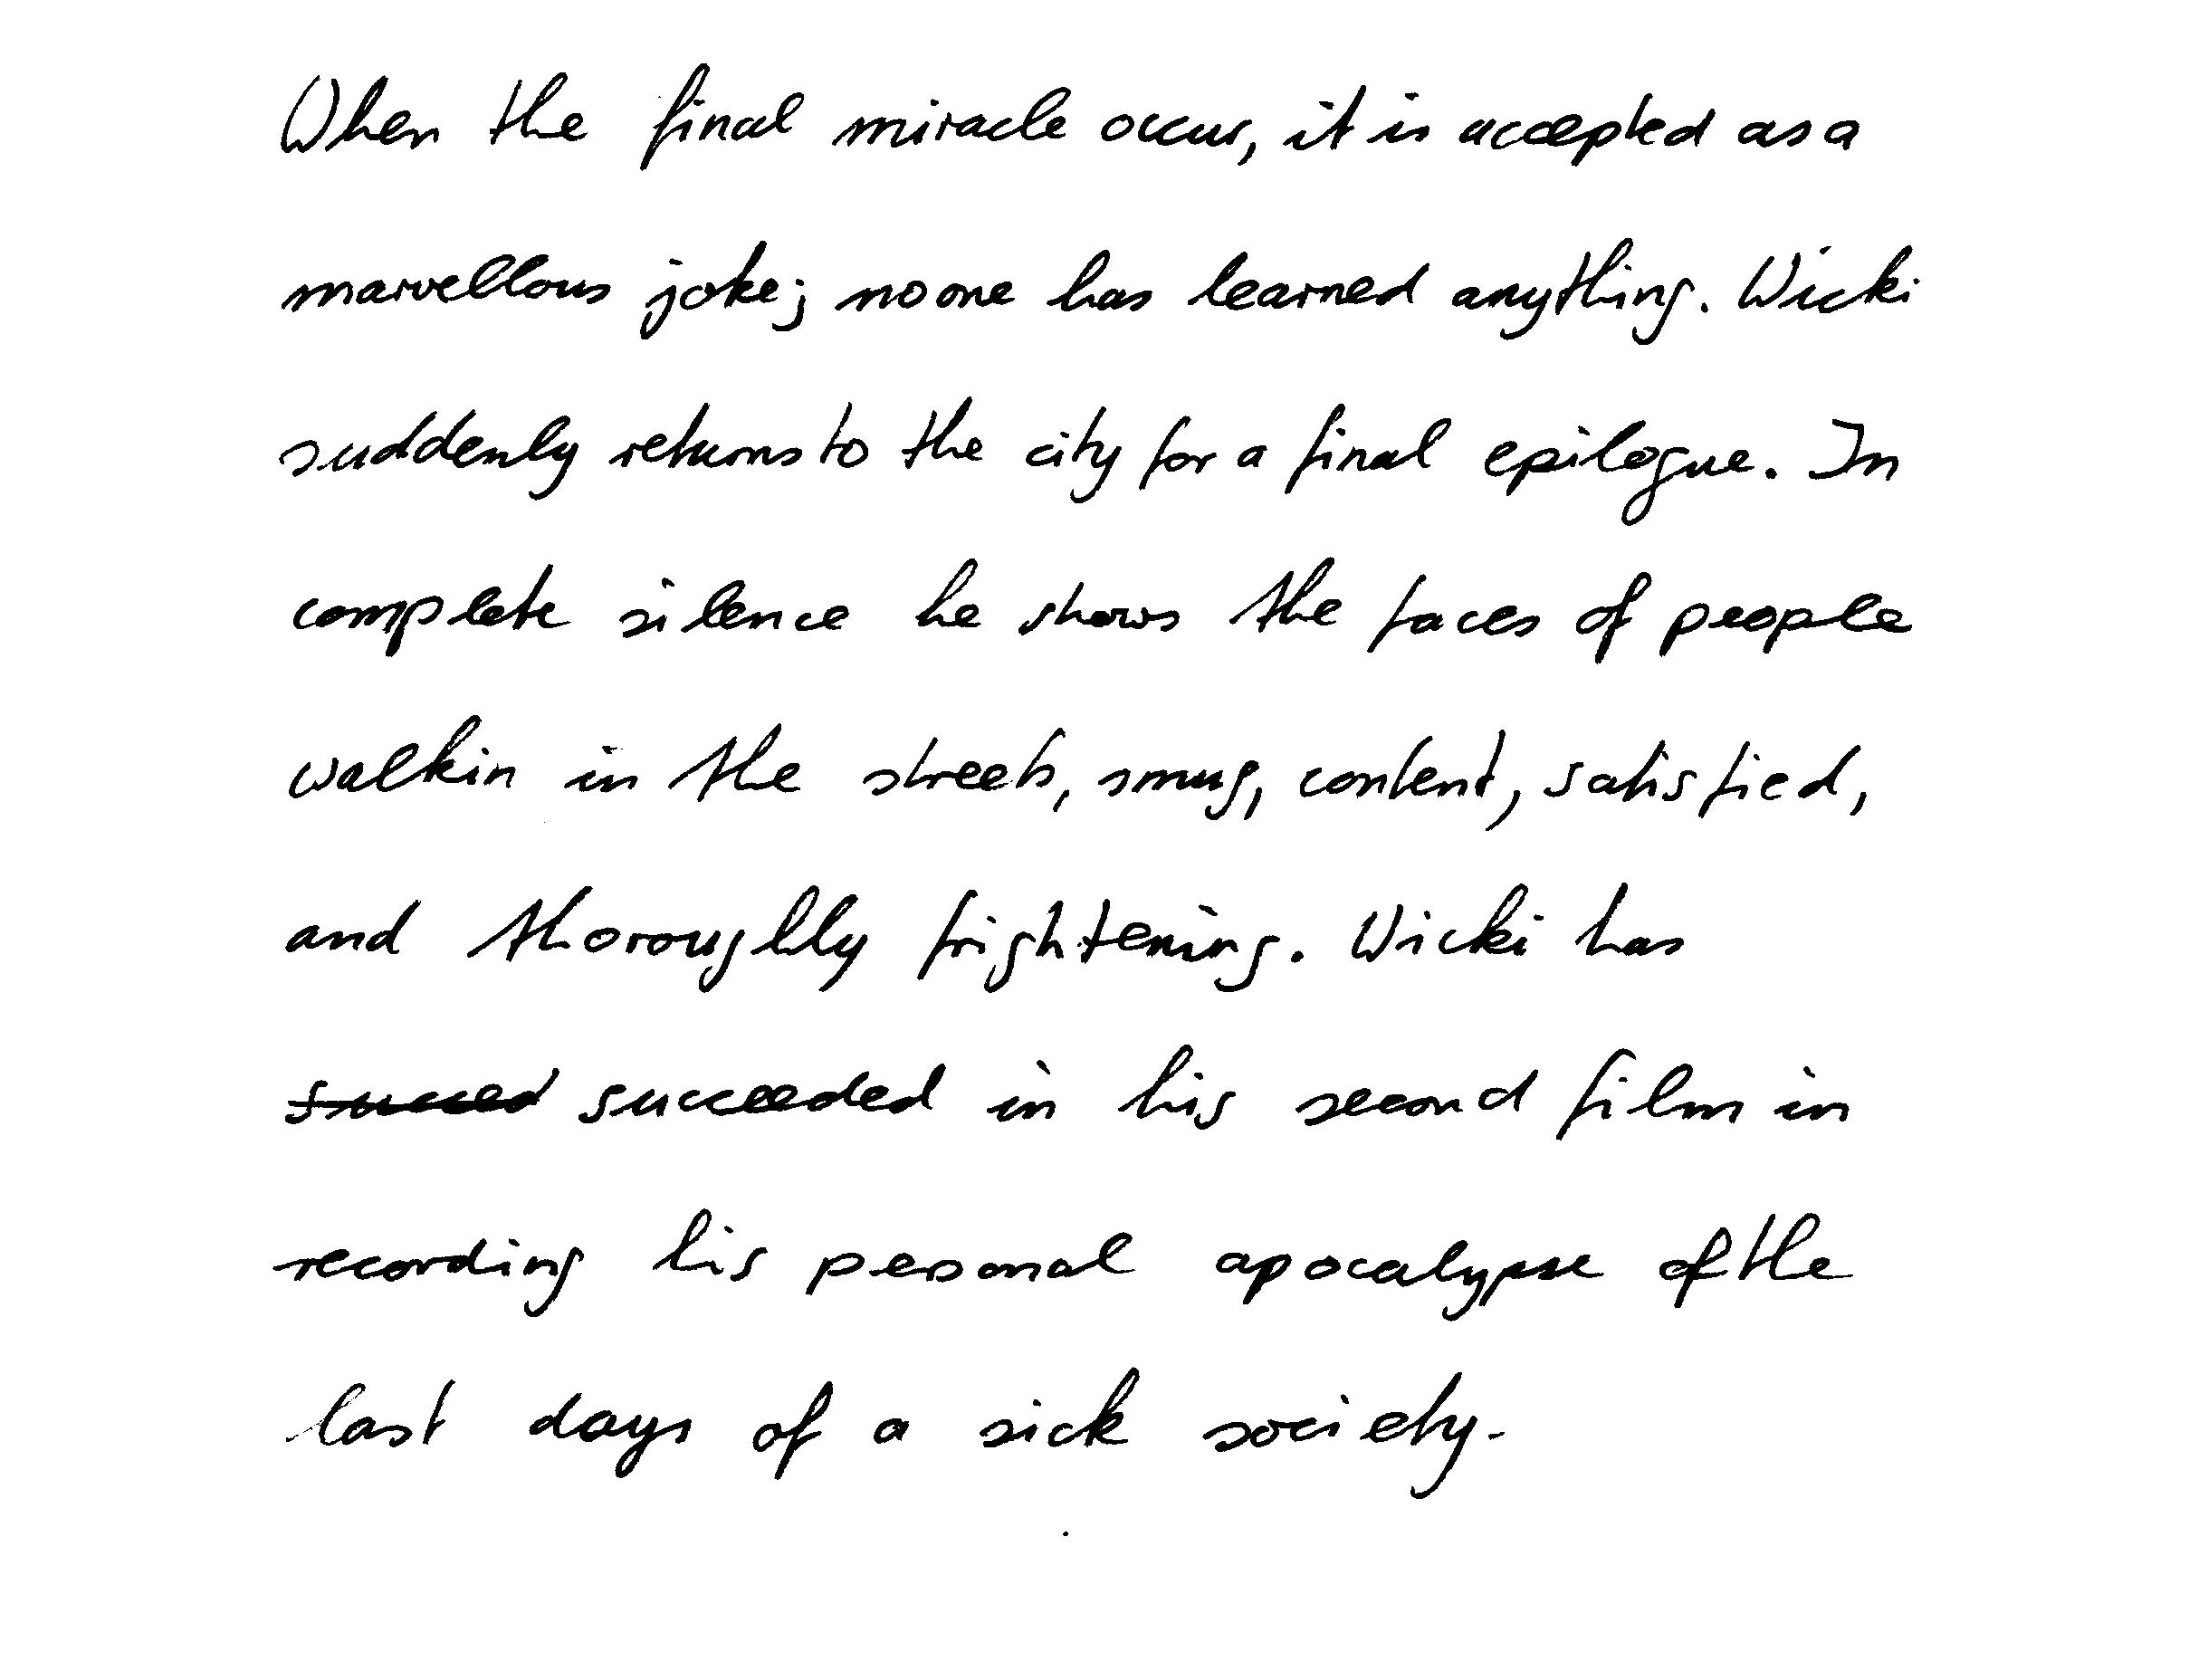 When the final miracle occurs, it is accepted as a
marvellous joke; no one has learned anything. Wicki
suddenly returns to the city for a final epilogue. In
complete silence he shows the faces of people
walkin in the streets, smug, content, satisfied,
and thoroughly frightening. Wicki has
succed succeeded in his second film in
recording his personal apocalypse of the
last days of a sick society.